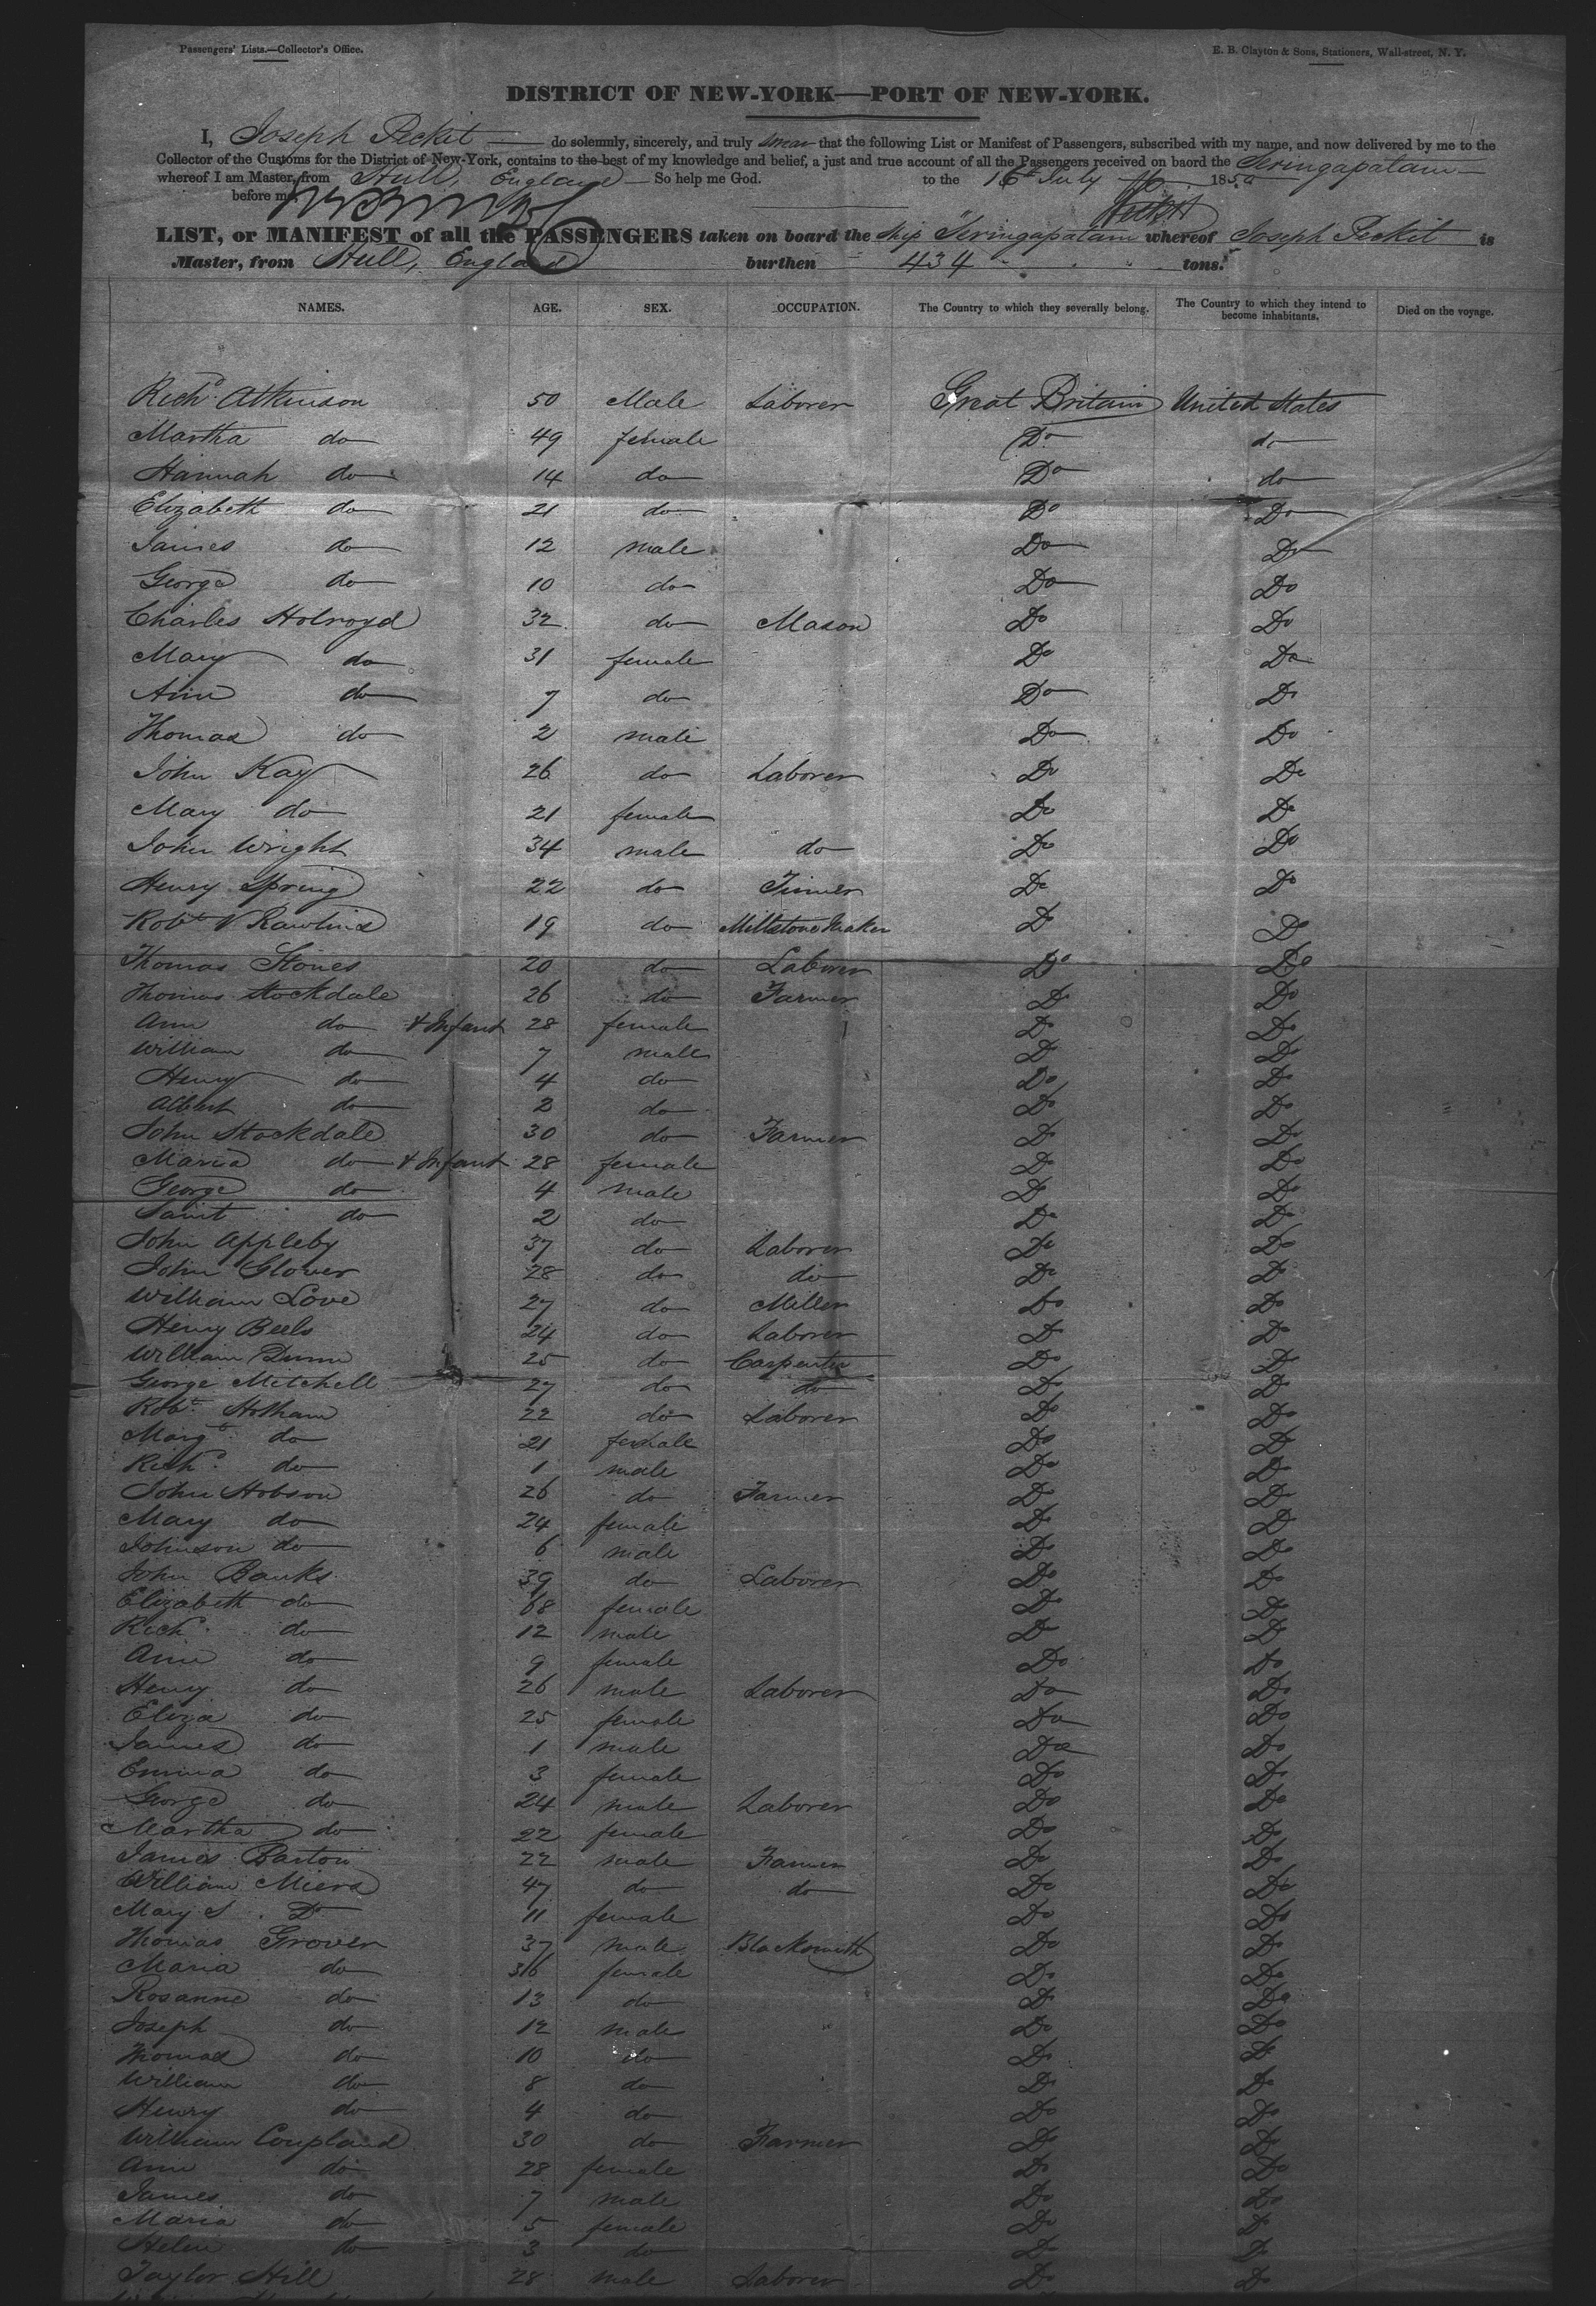 Passengers' Lists.—Collector's Office.
E. B. Clayton & Sons, Stationers, Wall-street, N. Y.
DISTRICT OF NEW-YORK—PORT OF NEW-YORK.
I, Joseph Peckit do solemnly, sincerely, and truly swear that the following List or Manifest of Passengers, subscribed with my name, and now delivered by me to the
Collector of the Customs for the District of New-York, contains to the best of my knowledge and belief, a just and true account of all the Passengers received on baord the Seringapatam
whereof I am Master, from Hull, England So help me God. to the 16th July 1850
before me
LIST, or MANIFEST of all the PASSENGERS taken on board the Ship Seringapatam whereof Joseph Peckit is
Master, from Hull, England burthen 434 tons.
NAMES. AGE. SEX. OCCUPATION. The Country to which they severally belong. The Country to which they intend to become inhabitants. Died on the voyage.
Richd. Atkinson 50 Male Laborer Great Britain United States
Martha do 49 female Do do
Hannah do 14 do Do do
Elizabeth do 21 do Do Do
James do 12 male Do Do
George do 10 do Do Do
Charles Holroyd 32 do Mason Do Do
Mary do 31 female Do Do
Ann do 7 do Do Do
Thomas do 2 male Do Do
John Kay 26 do Laborer Do Do
Mary do 21 female Do Do
John Wright 34 male do Do Do
Henry Spring 22 do Tinner Do Do
Robt V Rawlins 19 do Millstone Maker Do Do
Thomas Stones 20 do Laborer Do Do
Thomas Stockdale 26 do Farmer Do Do
Ann do & Infant 28 female Do Do
William do 7 male Do Do
Henry do 4 do Do Do
Albert do 2 do Do Do
John Stockdale 30 do Farmer Do Do
Maria do & Infant 28 female Do Do
George do 4 male Do Do
Saint do 2 do Do Do
John Appleby 37 do Laborer Do Do
John Glover 28 do do Do Do
William Love 27 do Miller Do Do
Henry Beels 24 do Laborer Do Do
William Dunn 25 do Carpenter Do Do
George Mitchell 27 do do Do Do
Robt. Hotham 22 do Laborer Do Do
Margt. do 21 female Do Do
Richd. do 1 male Do Do
John Hobson 26 do Farmer Do Do
Mary do 24 female Do Do
Johnson do 6 male Do Do
John Banks 39 do Laborer Do Do
Elizabeth do 68 female Do Do
Richd. do 12 male Do Do
Ann do 9 female Do Do
Henry do 26 male Laborer Do Do
Eliza do 25 female Do Do
James do 1 male Do Do
Emma do 3 female Do Do
George do 24 male Laborer Do Do
Martha do 22 female Do Do
James Barton 22 male Farmer Do Do
William Miers 47 do do Do Do
Mary S. Do 11 female Do Do
Thomas Grover 37 male Blacksmith Do Do
Maria do 36 female Do Do
Rosanne do 13 do Do Do
Joseph do 12 male Do Do
Thomas do 10 do Do Do
William do 8 do Do Do
Henry do 4 do Do Do
William Coupland 30 do Farmer Do Do
Ann do 28 female Do Do
James do 7 male Do Do
Maria do 5 female Do Do
Helen do 3 do Do Do
Taylor Hill 28 male Laborer Do Do